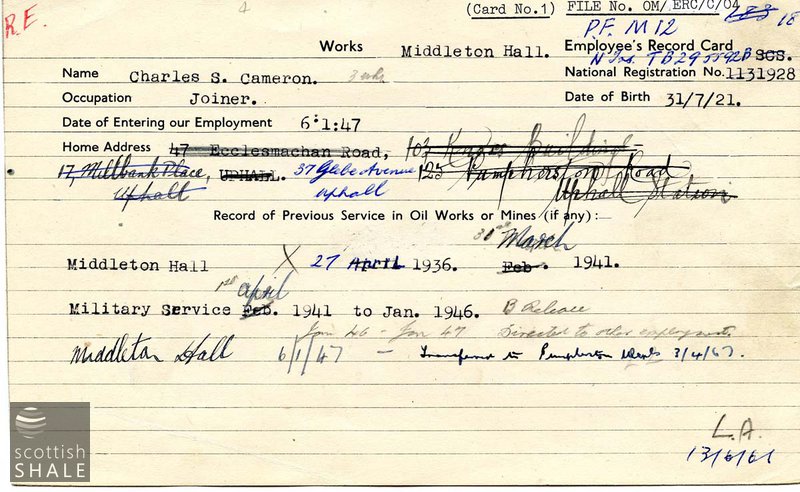 (Card No.1) FILE No. OM/ ERC/C/04 18
R.E. 4 P.F. M12
Works Middleton Hall. Employee's Record Card
N Ins. TB295592B SGS.
Name Charles S. Cameron. National Registration No. 1131928
Occupation Joiner. Date of Birth 31/7/21.
Date of Entering our Employment 6:1:47
Home Address 47 Ecclesmachan Road, 103 Building
17, Millbank Place, UPHALL. 37 Glebe Avenue 123 Pumpherston Road
Uphall Uphall Uphall Station
Record of Previous Service in Oil Works or Mines (if any):—
31st March
Middleton Hall X 27 April 1936. Feb. 1941.
1st April
Military Service Feb. 1941 to Jan. 1946. B Release
Jan 46 - Jan 47 Directed to other employment
Middleton Hall 6/1/47 — Transferred to Pumpherston 3/4/67.
L.A.
13/6/61
scottish
SHALE